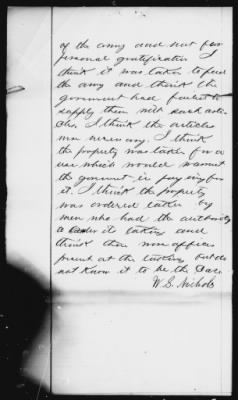 of the army and not for
personal gratification I
think it was taken to feed
the army and think the
government had failed to
supply them with such arti-
cles. I think the articles
was necessary. I think
the property was taken for a
use which would warrant
the government in paying for
it. I think the property
was ordered taken by
men who had the authority
to order its taking and
think there was officers
present at the taking but do
not know it to be the case
W. S. Nichols